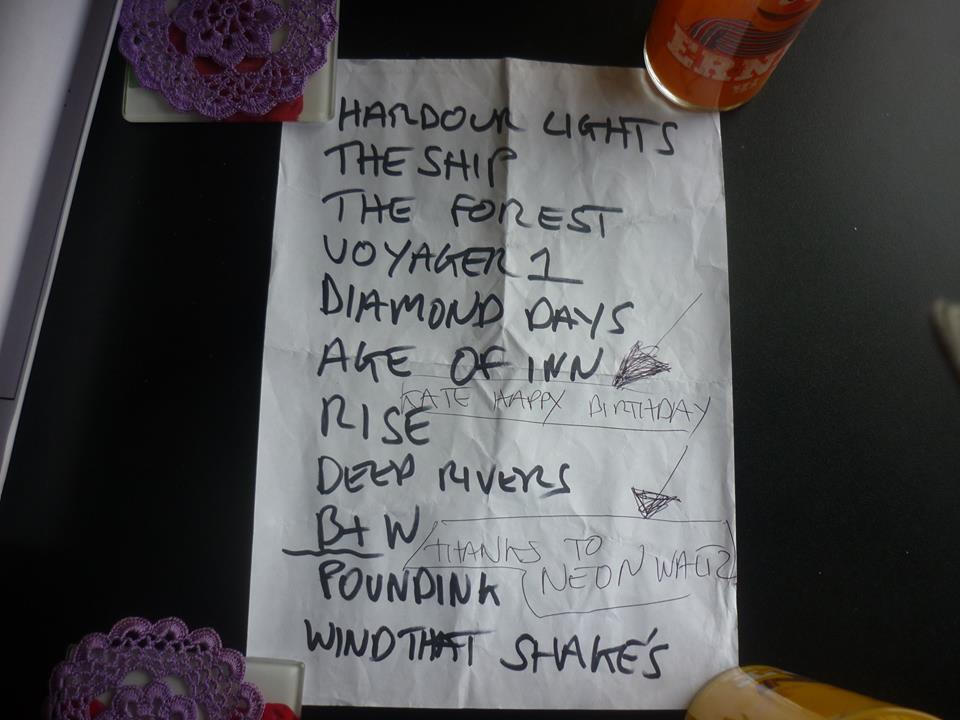 ERN
HARDOUR LIGHTS
THE SHIP
THE FOREST
VOYAGER 1
DIAMOND DAYS
AGE OF INN
KATE HAPPY BIRTHDAY
RISE
DEEP RIVERS
B+W
THANKS TO
NEON WALTZ
POUNDINK
WIND THAT SHAKE'S